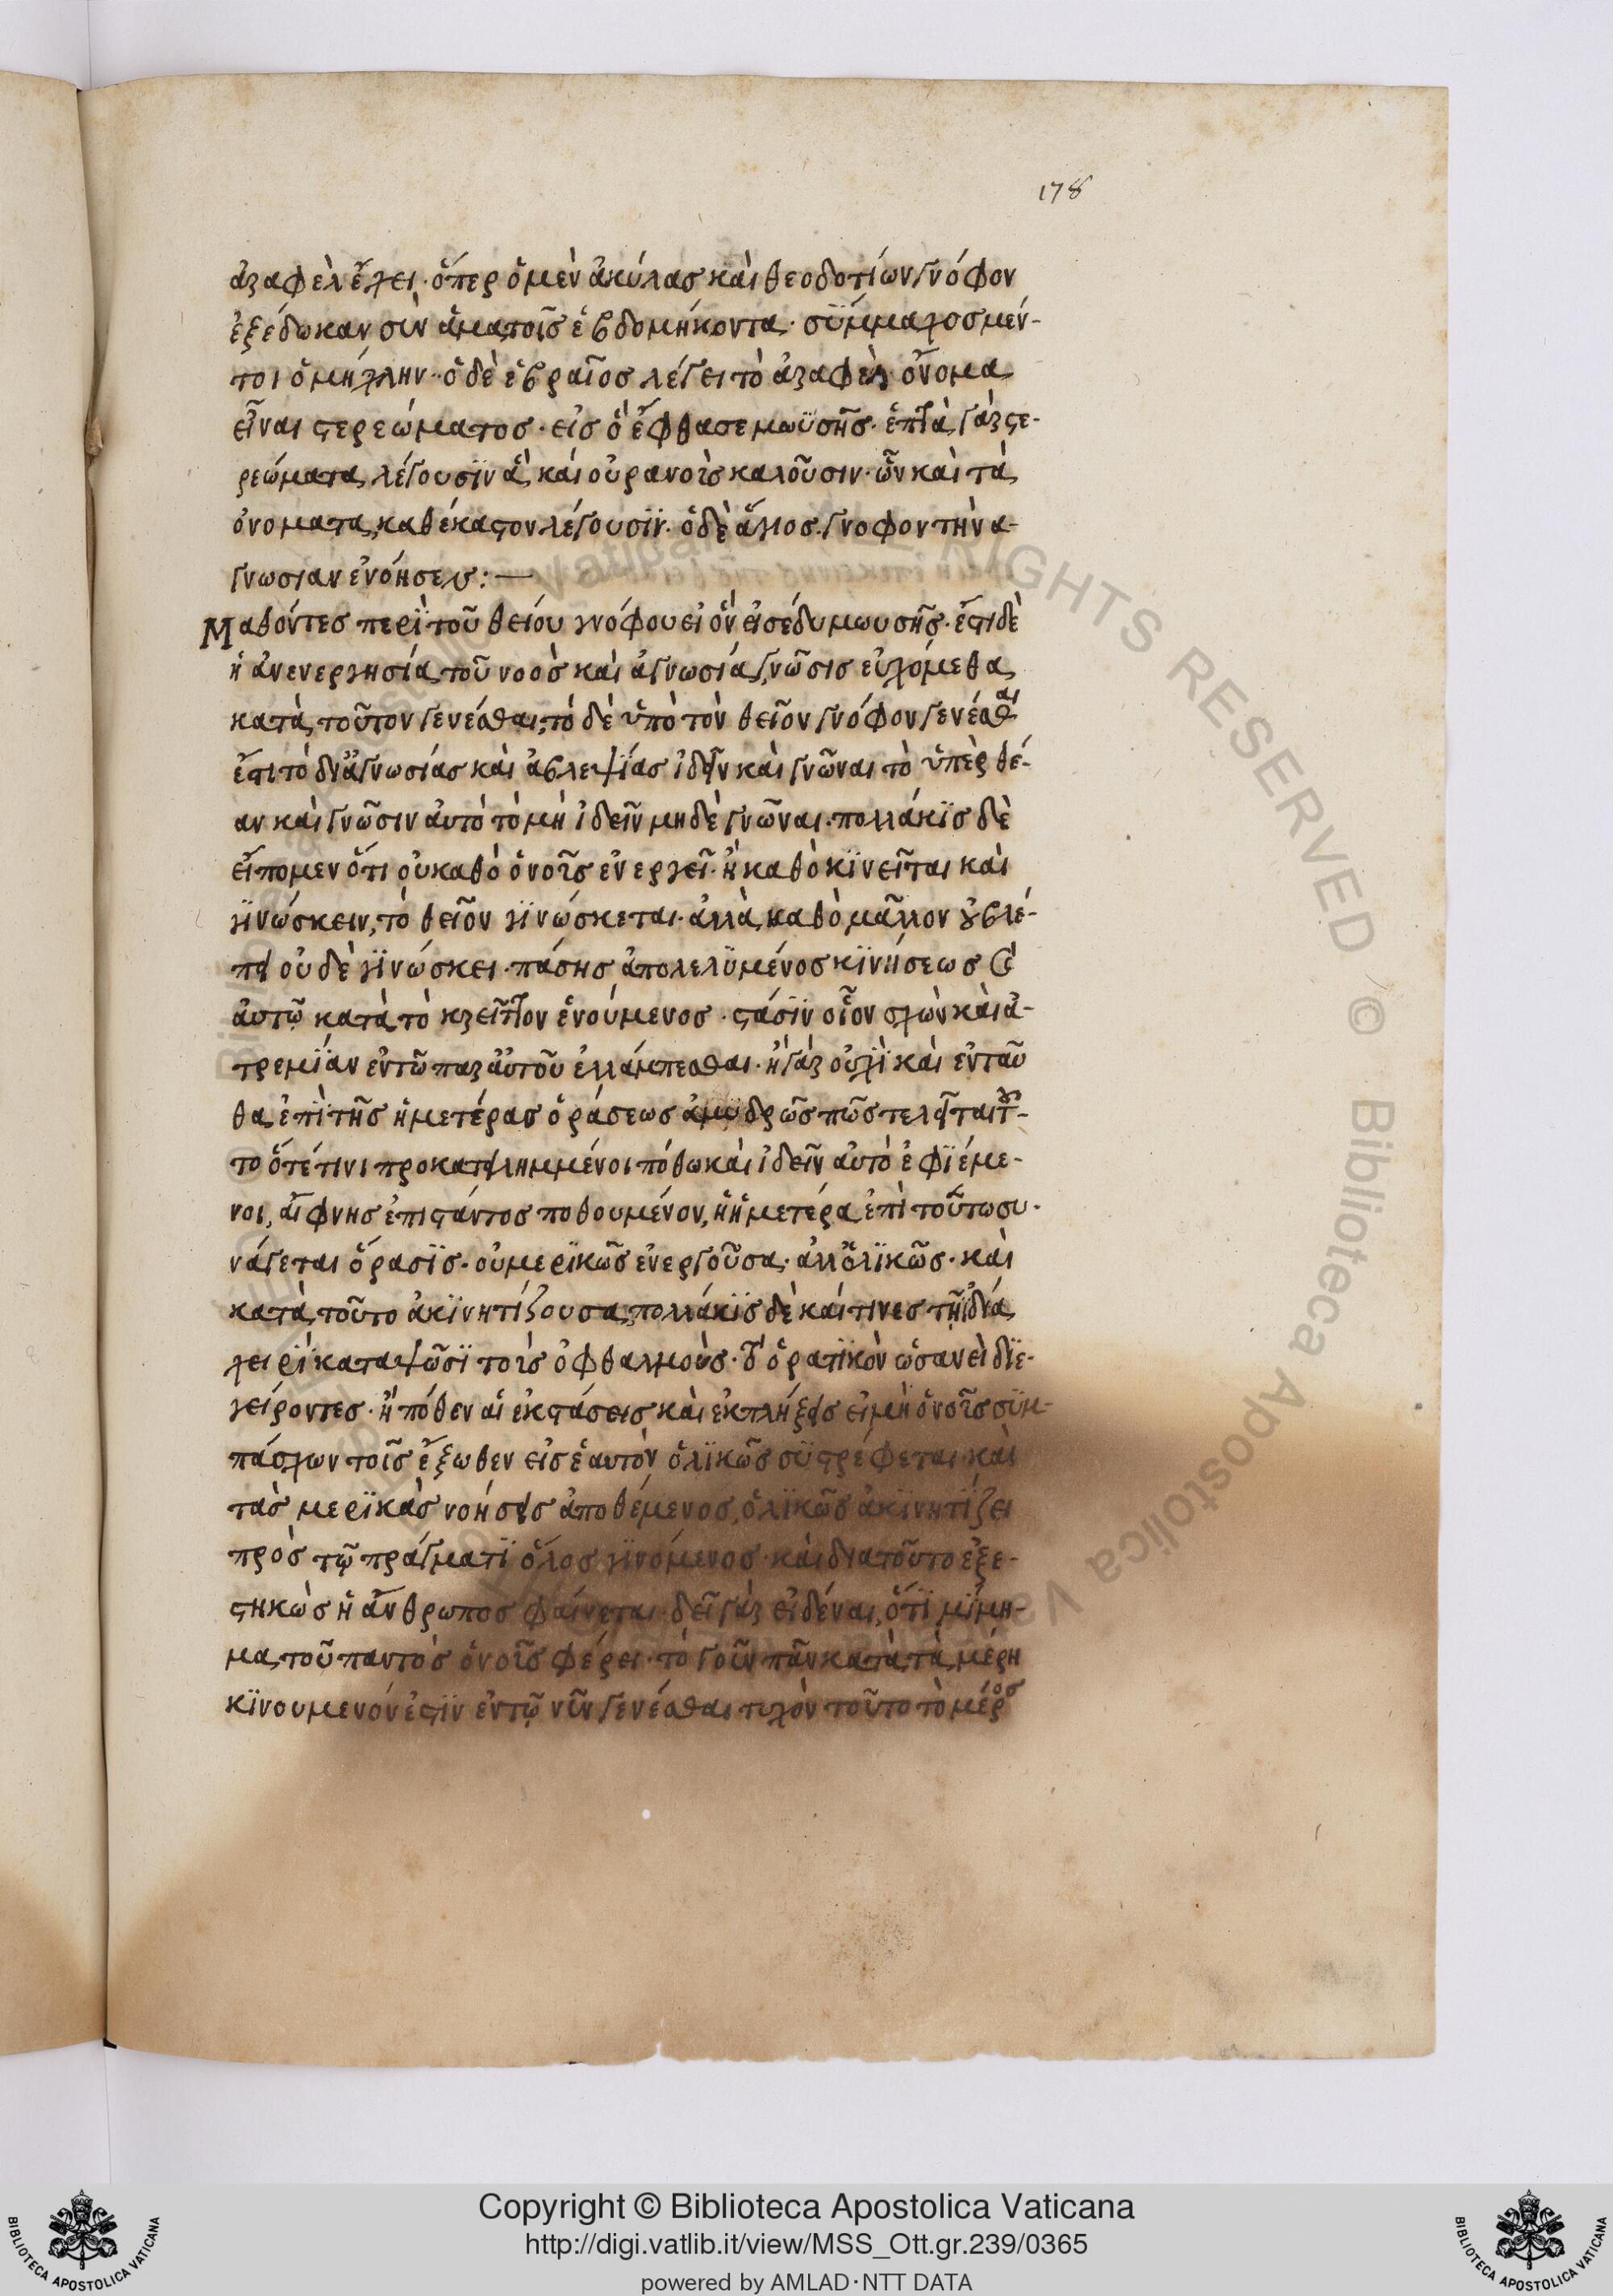 178
ἀραφὲλ ἔχει· ὅπερ ὁ μὲν ἀκύλας καὶ θεοδοτίων γνόφον
ἐξέδωκαν σὺν ἅμα τοῖς ἑβδομήκοντα· σύμμαχος μέν-
τοι ὁμήχλην· ὁ δὲ ἑβραῖος λέγει τὸ ἀραφὲλ ὄνομα
εἶναι στερεώματος· εἰς ὃ ἔφθασε μωϋσῆς· ἑπτὰ γὰρ στε-
ρεώματα λέγουσϊν ἃ καὶ οὐρανοὺς καλοῦσιν· ὧν καὶ τὰ
ὀνοματα καθέκαστον λέγουσϊν· ὁ δὲ ἄλλος γνοφον τὴν α-
γνωσιαν ἐνόησεν:—
Μαθόντες περὶ τοῦ θείου γνόφου εἰ ὃν εἰσέδυ μωυσῆς· ἔστι δὲ
ἡ ἀνενεργησία τοῦ νοὸς καὶ ἀγνωσία γνῶσις εὐχόμεθα
κατὰ τοῦτον γενέσθαι, τὸ δὲ ὑπὸ τὸν θεῖον γνόφον γενέσθαι
ἔστι τὸ δι ἀγνωσίας καὶ ἀβλεψίας ἰδεῖν καὶ γνῶναι τὸ ὑπὲρ θέ-
αν καὶ γνῶσιν αὐτὸ τὸ μὴ ἰδεῖν μηδὲ γνῶναι· πολλάκϊς δὲ
εἴπομεν ὅτι οὐ καθὸ ὁ νοῦς ἐνεργεῖ· ἢ καθὸ κϊνεῖται καὶ
γϊνώσκειν, τὸ θεῖον γϊνώσκεται· ἀλλὰ καθὸ μᾶλλον οὐ βλέ-
πει οὐδὲ γϊνώσκει· πάσης ἀπολελϋμένος κϊνήσεως καὶ
αὐτῷ κατὰ τὸ κρεῖττον ἑνούμενος· στάσϊν οἷον σχὼν καὶ ἀ-
τρεμίαν ἐν τῶ παρ αὐτοῦ ἐλλάμπεσθαι· ἢ γὰρ οὐχὶ καὶ ἐνταῦ
θα ἐπὶ τῆς ἡμετέρας ὁράσεως ἀμυδρῶς πῶς τελεῖται τοῦ-
το ὅτέ τινι προκατειλημμένοι πόθω καὶ ἰδεῖν αὐτὸ ἐφϊέμε-
νοι, αἴφνης ἐπιστάντος ποθουμένον, ἡ ἡμετέρα ἐπὶ τοῦτω συ-
νάγεται ὅρασϊς· οὐ μερϊκῶς ἐνεργοῦσα· ἀλλ ὁλϊκῶς· καὶ
κατὰ τοῦτο ἀκϊνητίζουσα, πολλάκϊς δὲ καί τινες τῇ ἰδία
χειρὶ καταψῶσϊ τοὺς ὀφθαλμοὺς· τὸ ὁρατϊκὸν ὡσανεὶ δϊε-
γείροντες· ἢ πόθεν αἱ ἐκστάσεις καὶ ἐκπλήξεις εἰ μὴ ὁ νοῦς συμ-
πάσχων τοῖς ἔξωθεν εἰς ἑαυτὸν ὁλϊκῶς συστρέφεται καὶ
τὰς μερϊκὰς νοήσεις ἀποθέμενος, ὁλϊκῶς ἀκϊνητίζει
πρὸς τῷ πράγματϊ ὅλος γϊνόμενος· καὶ διατοῦτο ἐξε-
στηκὼς ἡ ἄνθρωπος φαίνεται· δεῖ γὰρ εἰδέναι, ὅτϊ μίμη-
μα τοῦ παντὸς ὁ νοῦς φέρει· τὸ γοῦν πᾶν κατὰ τὰ μέρη
κϊνουμενόν ἐστϊν ἐν τῷ νῦν γενέσθαι τυχὸν τοῦτο τὸ μέρος
Copyright © Biblioteca Apostolica Vaticana
http://digi.vatlib.it/view/MSS_Ott.gr.239/0365
powered by AMLAD·NTT DATA
BIBLIOTECA APOSTOLICA VATICANA
BIBLIOTECA APOSTOLICA VATICANA